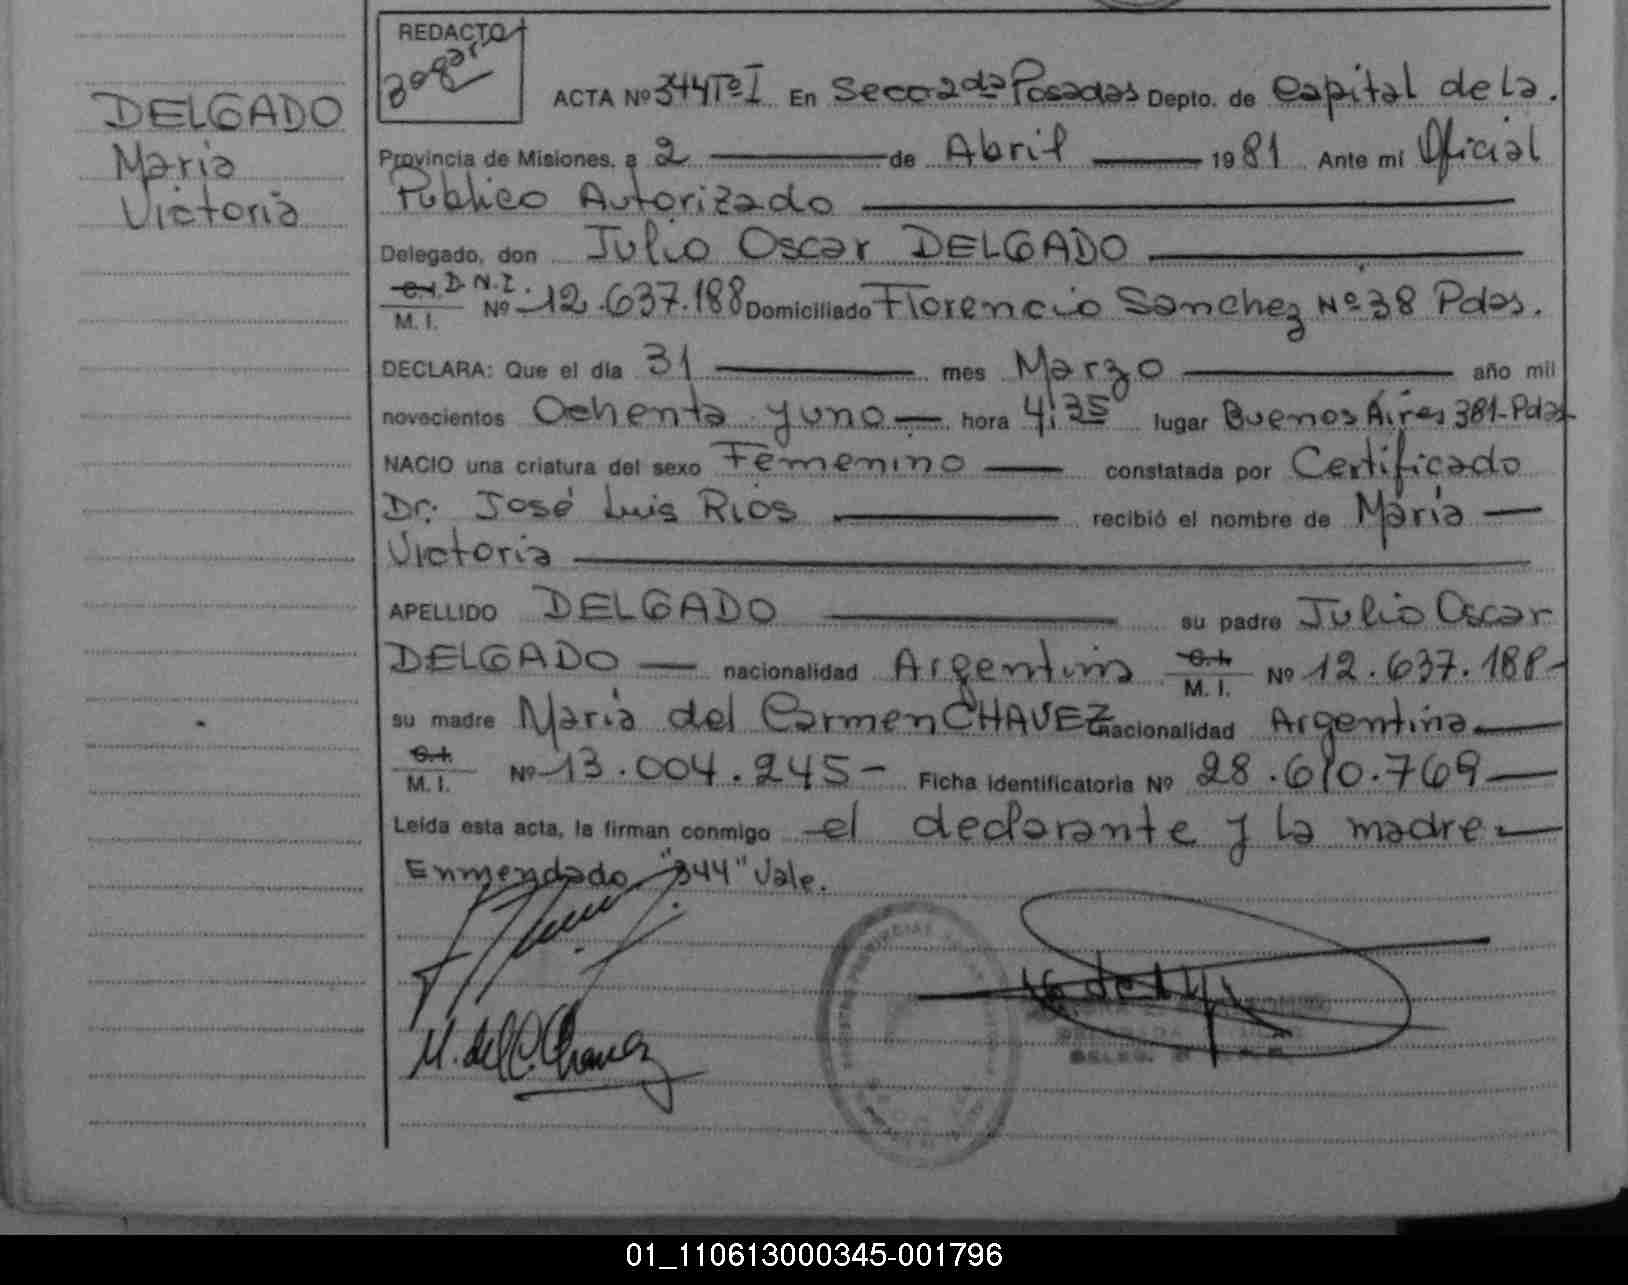 REDACTO
DELGADO
Maria
Victoria
ACTA Nº 344 Tº I En Secc 2da Posadas Depto. de Capital de la.
Provincia de Misiones. a 2 de Abril 1981 Ante mí Oficial
Publico Autorizado
Delegado, don Julio Oscar DELGADO
C.I. D.N.I.
M. I. Nº 12.637.188 Domiciliado Florencio Sanchez Nº 38 Pdas.
DECLARA: Que el día 31 mes Marzo año mil
novecientos Ochenta y uno hora 4:35 lugar Buenos Aires 381-Pdas
NACIO una criatura del sexo Femenino constatada por Certificado
Dr. José Luis Rios recibió el nombre de Maria
Victoria
APELLIDO DELGADO su padre Julio Oscar
DELGADO nacionalidad Argentina C.I. M. I. Nº 12.637.188-
su madre Maria del Carmen CHAVEZ nacionalidad Argentina
C.I. M. I. Nº 13.004.245- Ficha Identificatoria Nº 28.610.769
Leída esta acta, la firman conmigo el declarante y la madre
Enmendado "344" Vale.
M. del C. Chavez
01_110613000345-001796